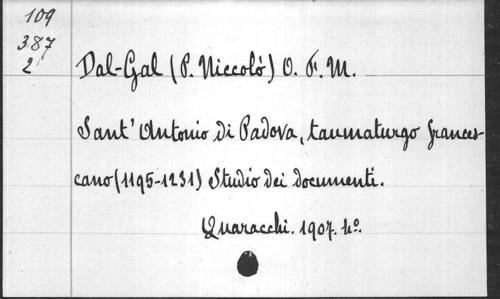 109
387
2
Dal-Gal (P. Niccolò) O. F. M.
Sant' Antonio di Padova, taumaturgo frances-
cano (1195-1231) Studio dei documenti.
Quaracchi. 1907. 4º.